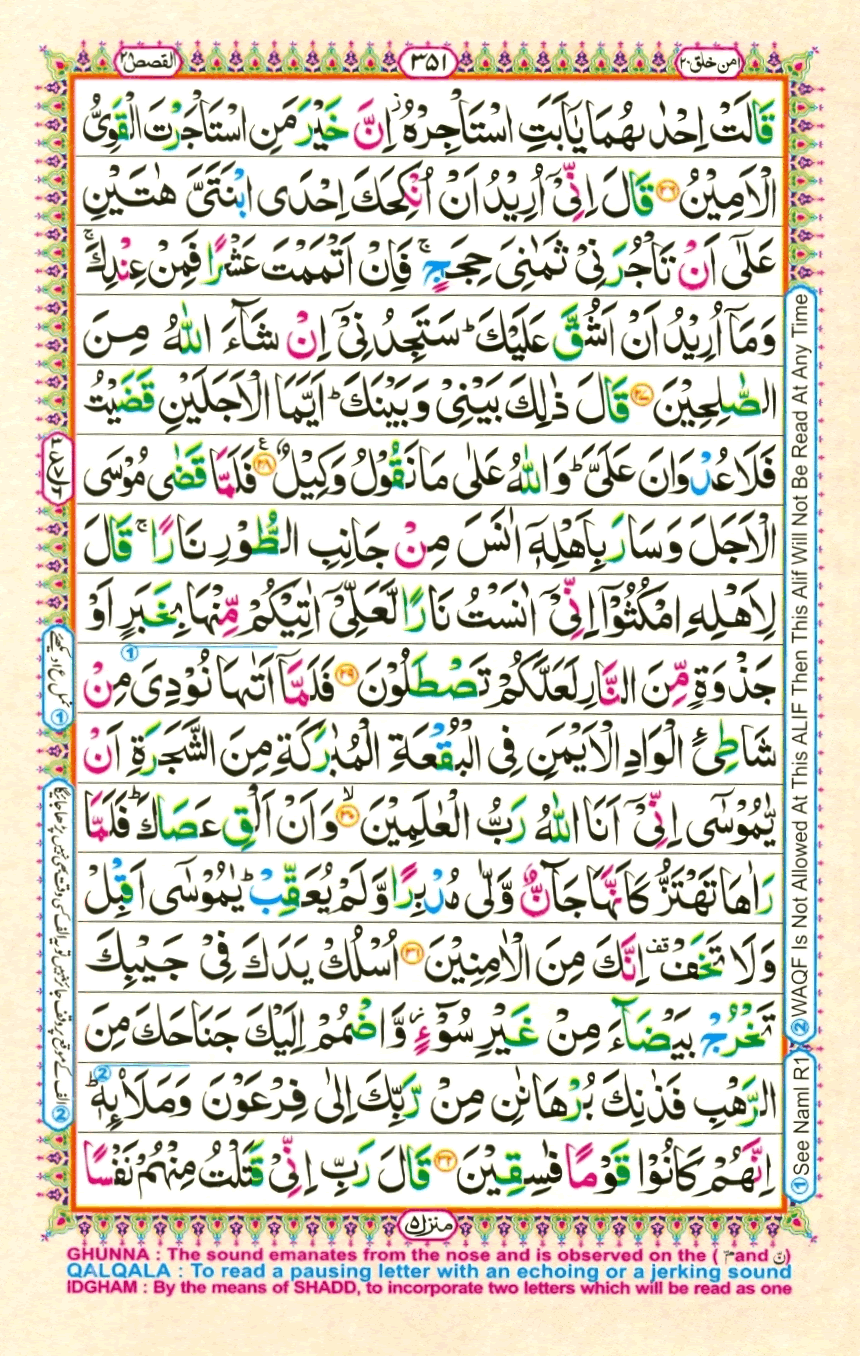 امن خلق ٢٠
٣٥١
القصص ٢٨
قَالَتْ اِحْدٰىهُمَا يٰۤاَبَتِ اسْتَاْجِرْهُ ۫ اِنَّ خَيْرَ مَنِ اسْتَاْجَرْتَ الْقَوِيُّ
الْاَمِيْنُ ۝٢٦ قَالَ اِنِّيْۤ اُرِيْدُ اَنْ اُنْكِحَكَ اِحْدَى ابْنَتَيَّ هٰتَيْنِ
عَلٰۤى اَنْ تَاْجُرَنِيْ ثَمٰنِيَ حِجَجٍ ۚ فَاِنْ اَتْمَمْتَ عَشْرًا فَمِنْ عِنْدِكَ ۚ
وَمَاۤ اُرِيْدُ اَنْ اَشُقَّ عَلَيْكَ ؕ سَتَجِدُنِيْۤ اِنْ شَآءَ اللّٰهُ مِنَ
الصّٰلِحِيْنَ ۝٢٧ قَالَ ذٰلِكَ بَيْنِيْ وَبَيْنَكَ ؕ اَيَّمَا الْاَجَلَيْنِ قَضَيْتُ
فَلَا عُدْوَانَ عَلَيَّ ؕ وَاللّٰهُ عَلٰى مَا نَقُوْلُ وَكِيْلٌ ۝٢٨ ع فَلَمَّا قَضٰى مُوْسَى
الْاَجَلَ وَسَارَ بِاَهْلِهٖۤ اٰنَسَ مِنْ جَانِبِ الطُّوْرِ نَارًا ۚ قَالَ
لِاَهْلِهِ امْكُثُوْۤا اِنِّيْۤ اٰنَسْتُ نَارًا لَّعَلِّيْۤ اٰتِيْكُمْ مِّنْهَا بِخَبَرٍ اَوْ
جَذْوَةٍ مِّنَ النَّارِ لَعَلَّكُمْ تَصْطَلُوْنَ ۝٢٩ فَلَمَّاۤ اَتٰىهَا نُوْدِيَ مِنْ
شَاطِئِ الْوَادِ الْاَيْمَنِ فِي الْبُقْعَةِ الْمُبٰرَكَةِ مِنَ الشَّجَرَةِ اَنْ
يّٰمُوْسٰۤى اِنِّيْۤ اَنَا اللّٰهُ رَبُّ الْعٰلَمِيْنَ ۝٣٠ۙ وَاَنْ اَلْقِ عَصَاكَ ؕ فَلَمَّا
رَاٰهَا تَهْتَزُّ كَاَنَّهَا جَآنٌّ وَّلّٰى مُدْبِرًا وَّلَمْ يُعَقِّبْ ؕ يٰمُوْسٰۤى اَقْبِلْ
وَلَا تَخَفْ ۫ قف اِنَّكَ مِنَ الْاٰمِنِيْنَ ۝٣١ اُسْلُكْ يَدَكَ فِيْ جَيْبِكَ
تَخْرُجْ بَيْضَآءَ مِنْ غَيْرِ سُوْٓءٍ ۫ وَّاضْمُمْ اِلَيْكَ جَنَاحَكَ مِنَ
الرَّهْبِ فَذٰنِكَ بُرْهَانٰنِ مِنْ رَّبِّكَ اِلٰى فِرْعَوْنَ وَمَلَا۟ئِهٖ ؕ
اِنَّهُمْ كَانُوْا قَوْمًا فٰسِقِيْنَ ۝٣٢ قَالَ رَبِّ اِنِّيْ قَتَلْتُ مِنْهُمْ نَفْسًا
منزل ٥
① See Naml R1
② WAQF Is Not Allowed At This ALIF Then This Alif Will Not Be Read At Any Time
GHUNNA : The sound emanates from the nose and is observed on the ( مّ and نّ)
QALQALA : To read a pausing letter with an echoing or a jerking sound
IDGHAM : By the means of SHADD, to incorporate two letters which will be read as one